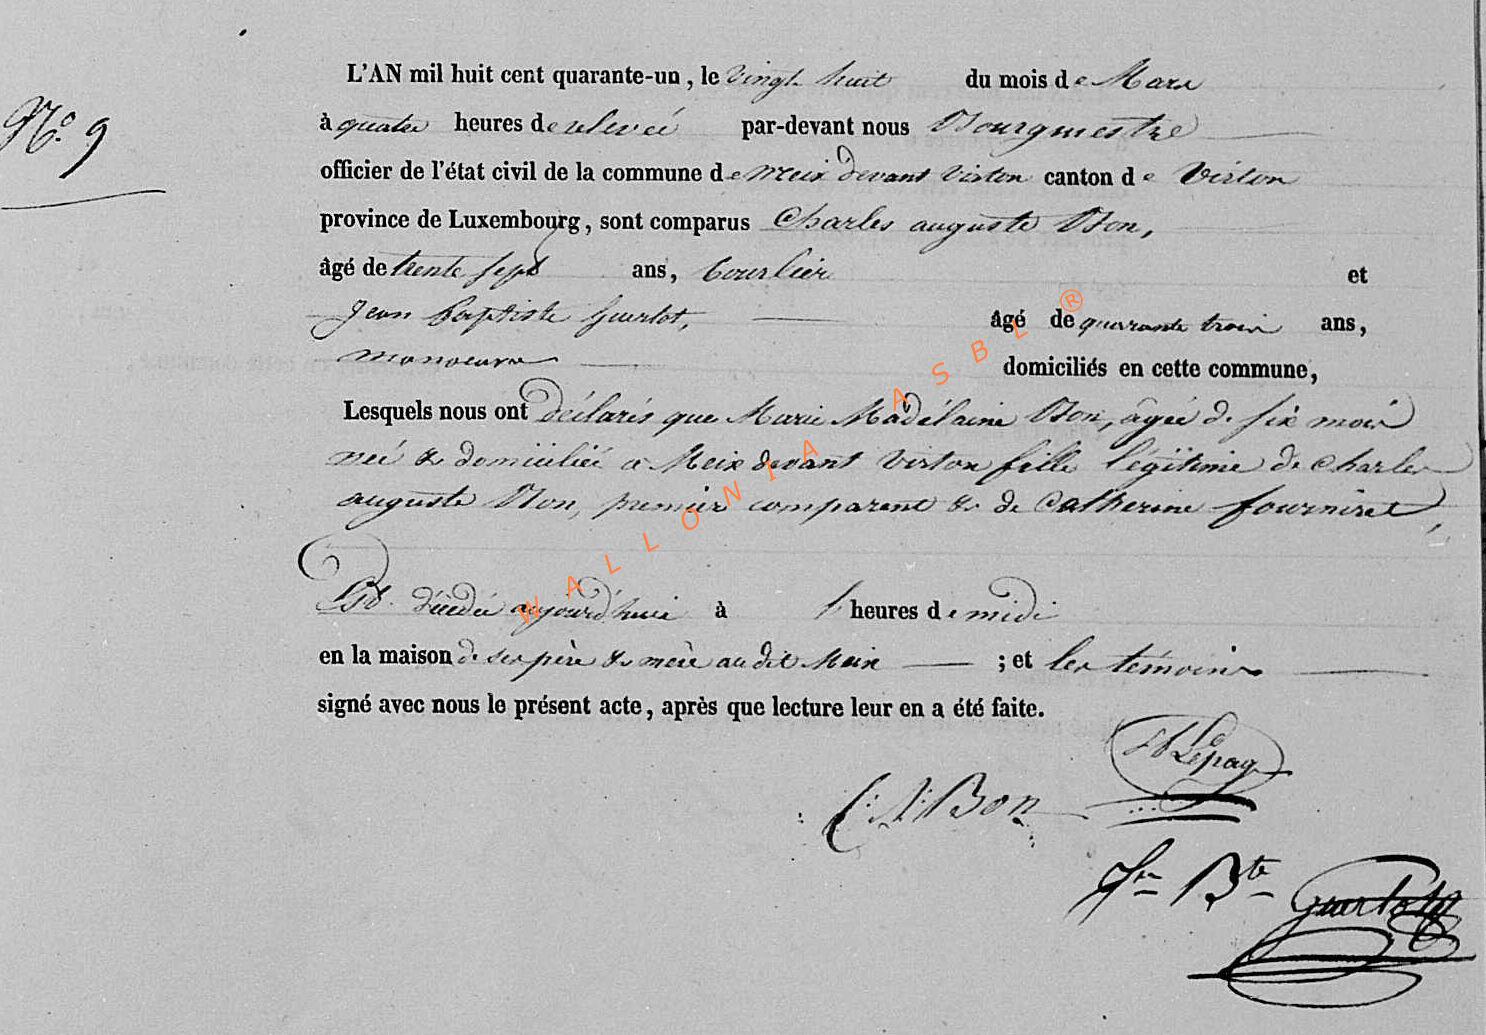 N.º 9
L'AN mil huit cent quarante-un, le vingt huit du mois de Mars
à quatre heures de relevée par-devant nous Bourgmestre
officier de l'état civil de la commune de Meix devant Virton canton de Virton
province de Luxembourg, sont comparus Charles auguste Bon,
âgé de trente sept ans, et
Jean Baptiste Guerlot, âgé de quarante trois ans,
manoeuvre domiciliés en cette commune,
Lesquels nous ont déclarés que Marie Madélaine Bon, âgée de six mois
née & domiciliée a Meix devant Virton fille légitime de Charles
auguste Bon, premier comparent & de Catherine fourniret,
Est décédée aujourd'hui à heures de midi
en la maison de ses père & mère au dit Meix ; et les témoins
signé avec nous le présent acte, après que lecture leur en a été faite.
Lepag
C: A: Bon
Jn Bte Guerlot
WALLONIA ASBL ®